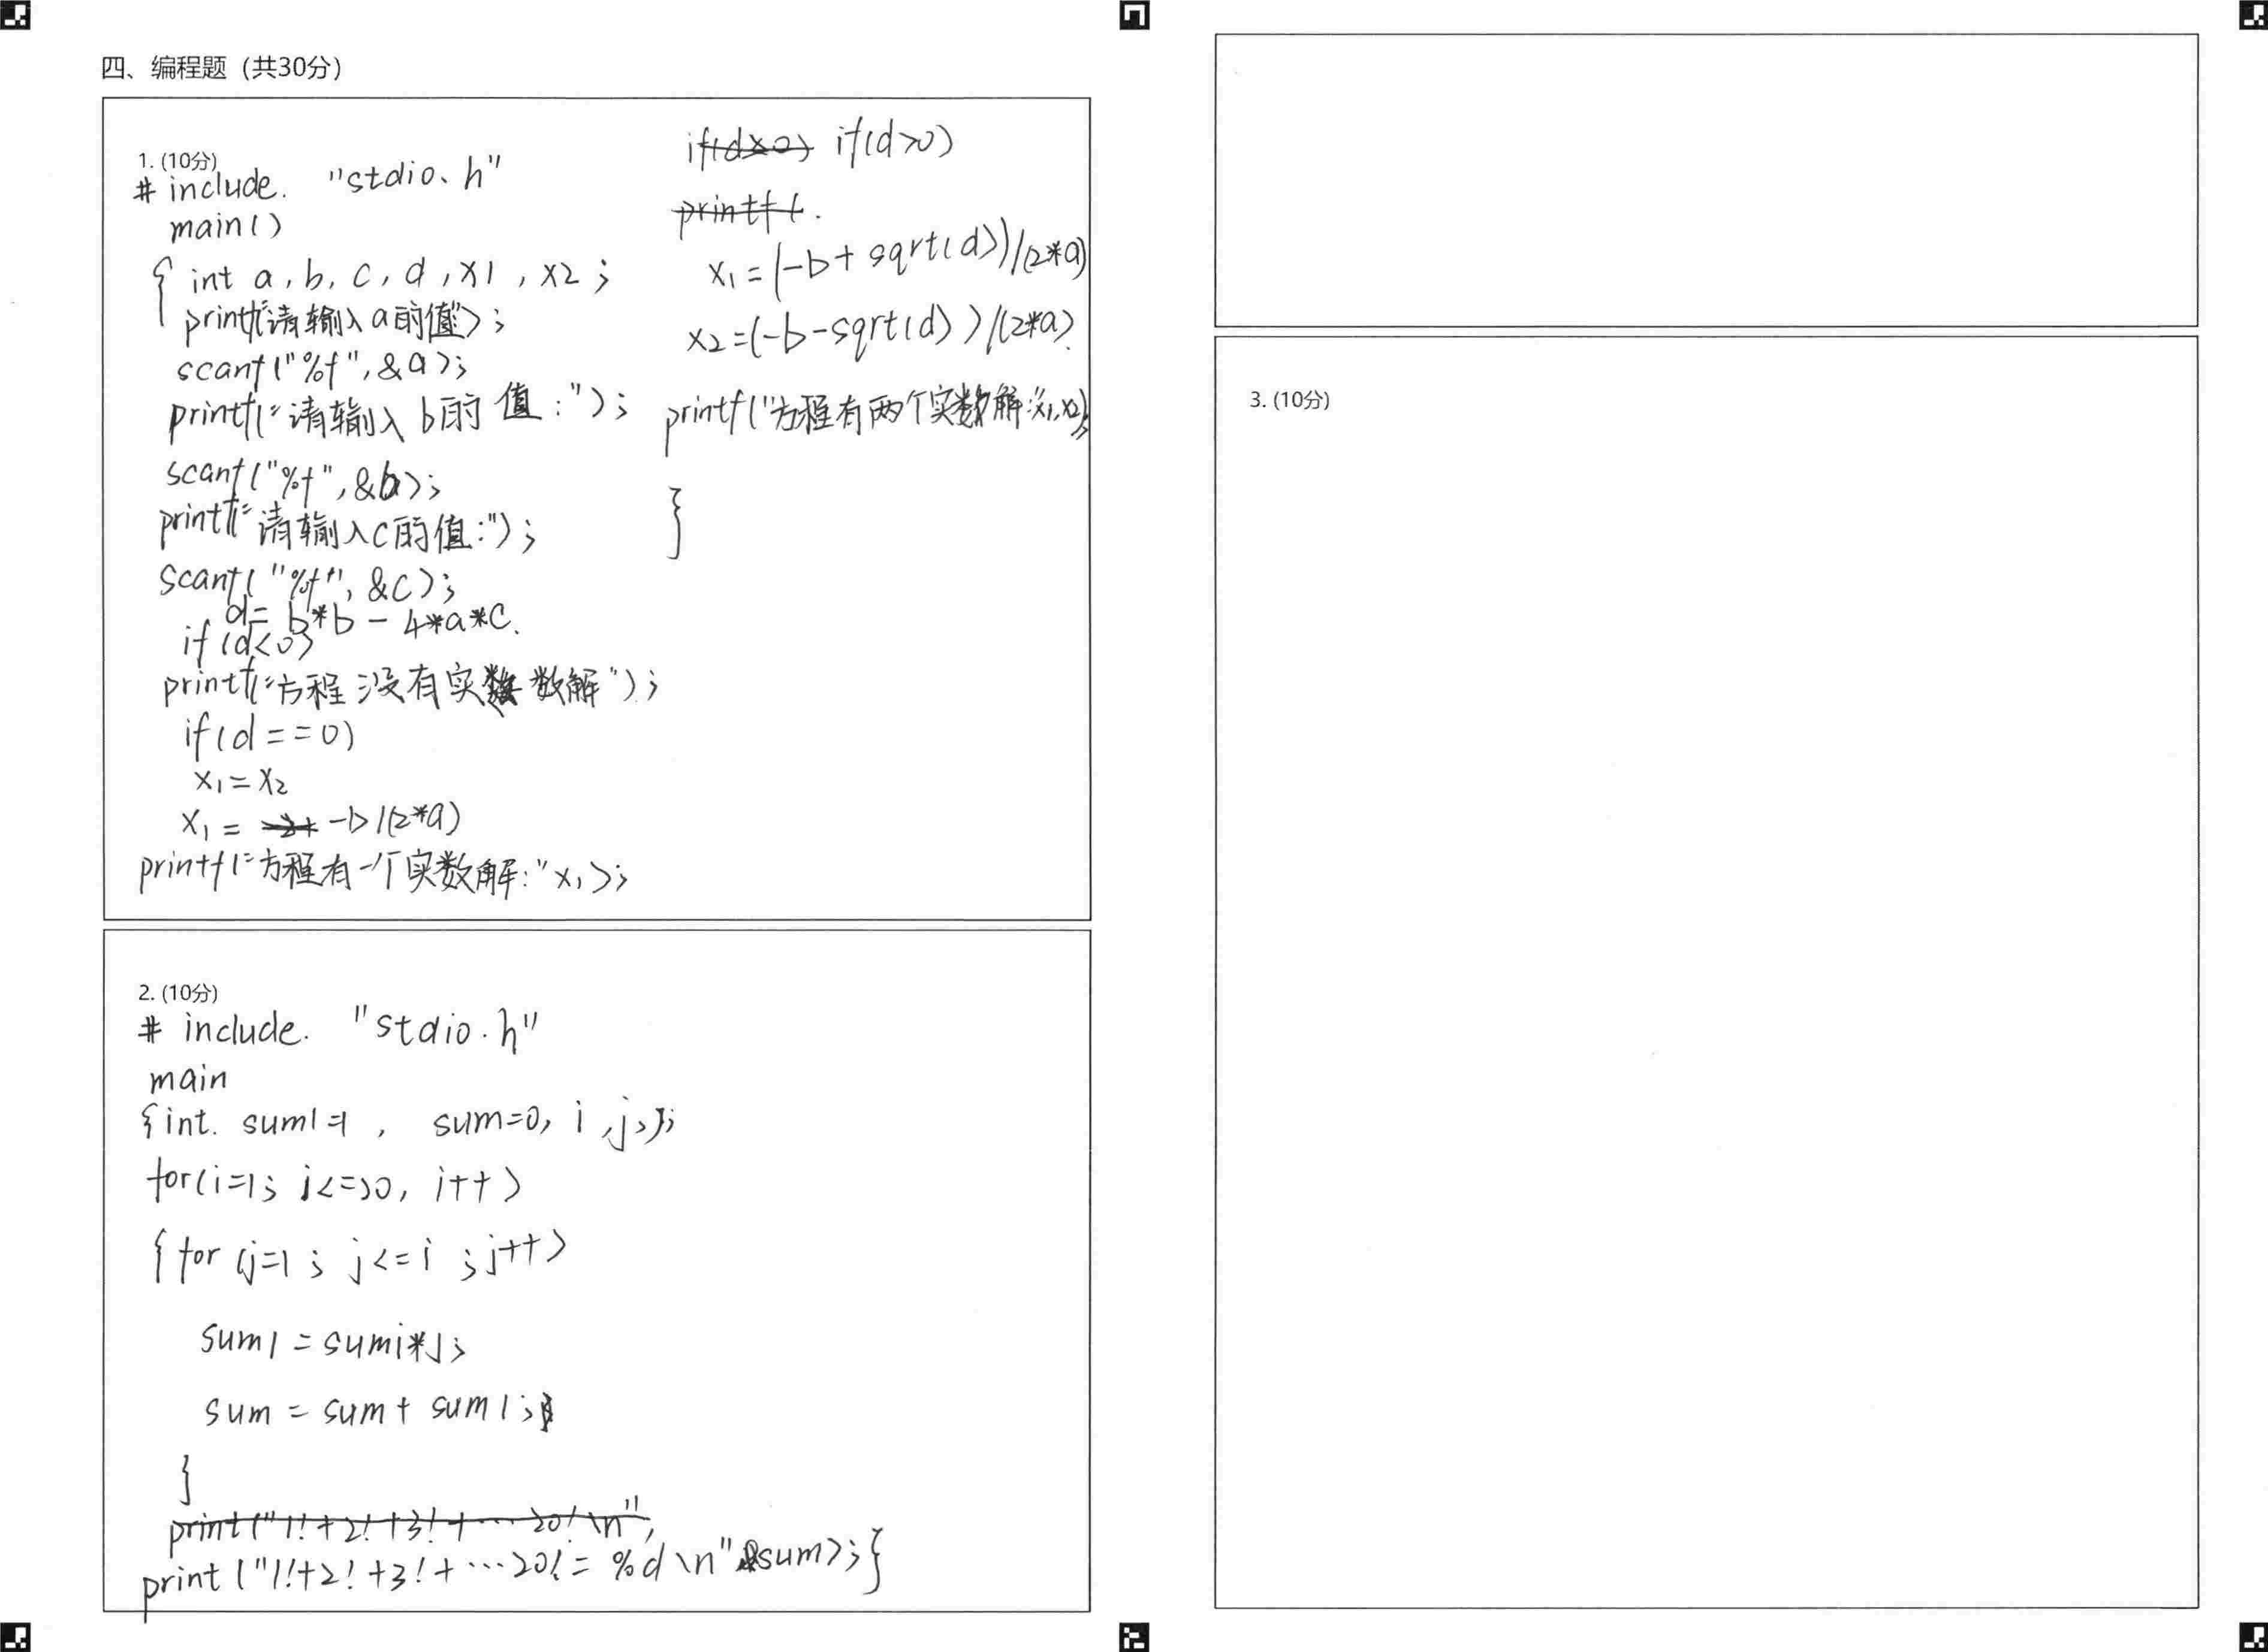 四、编程题（共30分）
1. (10分)
# include. "stdio、h"
main()
{ int a, b, c, d, x1, x2;
printf("请输入a的值");
scanf("%f", &a);
printf("请输入b的值:");
scanf("%f", &b);
printf("请输入c的值:");
scanf("%f", &c);
d= b*b - 4*a*c.
if(d<0)
printf("方程没有实数解");
if(d==0)
x1=x2
x1= -b/(2*a)
printf("方程有一个实数解:"x1);
if(d>0)
x1=(-b+sqrt(d))/(2*a)
x2=(-b-sqrt(d))/(2*a)
printf("方程有两个实数解:"x1,x2);
}
2. (10分)
# include. "stdio.h"
main
{int. sum1=1, sum=0, i,j,);
for(i=1; i<=20, i++)
{for (j=1; j<=i; j++)
sum1=sum1*j;
sum=sum+sum1;
}
print("1!+2!+3!+…20!\n",
print("1!+2!+3!+…20!=%d\n" sum);}
3. (10分)